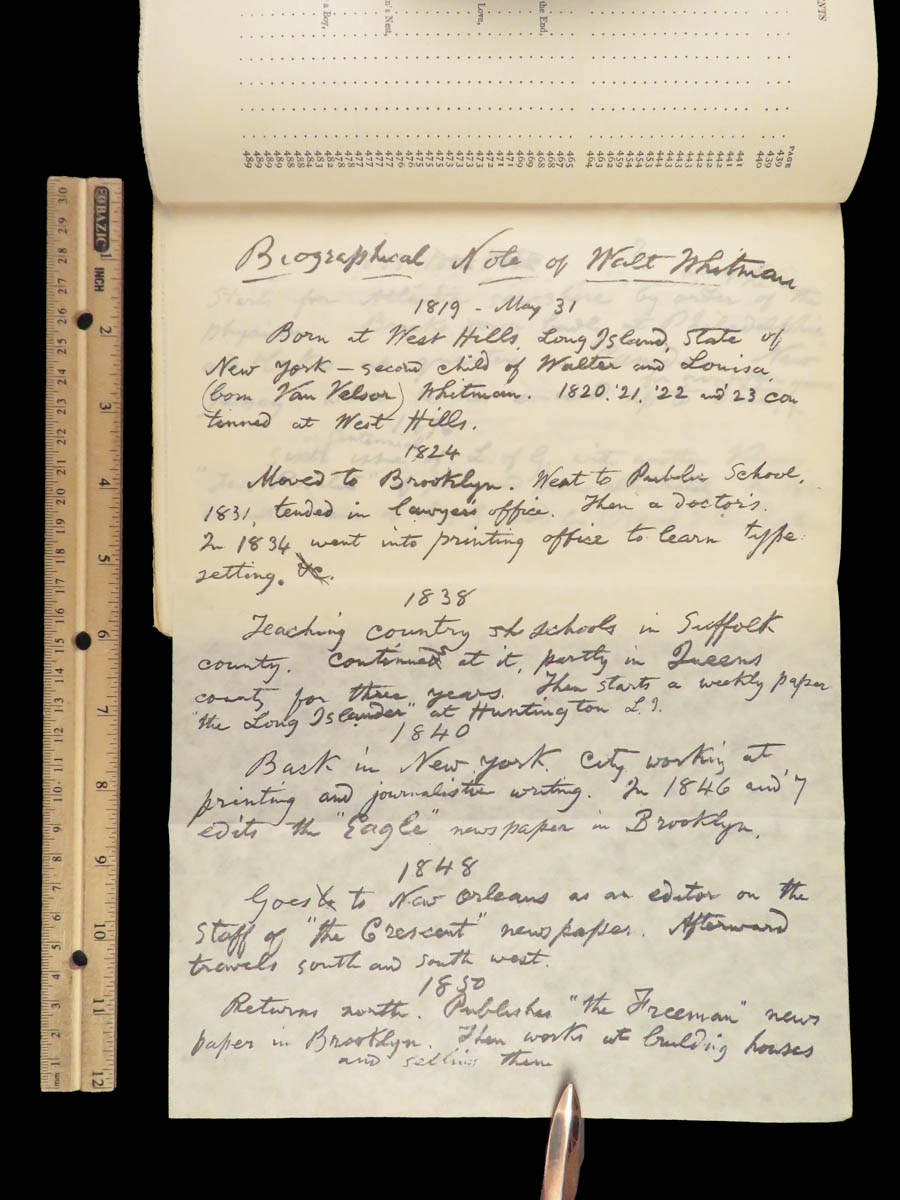 ENTS
the End,
Love,
n's Nest,
a Boy,
PAGE
439
439
440
441
441
442
442
442
443
443
443
444
451
453
454
454
459
462
463
464
465
467
468
468
469
466
471
471
472
473
473
473
475
475
475
476
476
477
477
477
478
478
482
481
483
488
488
489
489
489
489
Biographical Note of Walt Whitman
1819 - May 31
Born at West Hills, Long Island, State of
New York – second child of Walter and Louisa,
(born Van Velsor) Whitman. 1820, '21, '22 and '23 con
tinued at West Hills.
1824
Moved to Brooklyn. Went to Public School,
1831, tended in lawyer's office. Then a Doctor's.
In 1834 went into printing office to learn type
setting. &c.
1838
Teaching country sh schools in Suffolk
county. Continued at it, partly in Queens
county for three years. Then starts a weekly paper
"the Long Islander" at Huntington L.I.
1840
Back in New York City working at
printing and journalistic writing. In 1846 and '7
edits the "Eagle" newspaper in Brooklyn.
1848
Goes to New Orleans as an editor on the
Staff of "the Crescent" newspaper. Afterward
travels south and south west.
1850
Returns north. Publishes "the Freeman" news
paper in Brooklyn. Then works at building houses
and selling them
BAZIC
INCH
1
2
3
4
5
6
7
8
9
10
11
12
30
29
28
27
26
25
24
23
22
21
20
19
18
17
16
15
14
13
12
11
10
9
8
7
6
5
4
3
2
1
mm